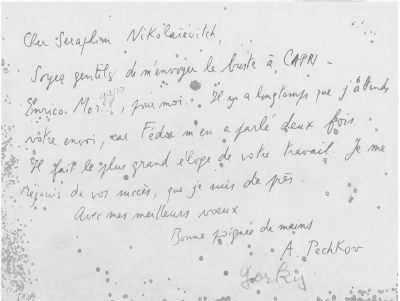 Cher Seraphim Nikolaiévitch,
Soyez gentils de m'envoyer le buste à CAPRI -
gano
Enrico. Mor , pour moi. Il y a longtemps que j'attends
votre envoi, car Fédor m'en a parlé deux fois
Il fait le plus grand éloge de votre travail. Je me
réjouis de vos succès, que je suis de près.
Avec mes meilleurs voeux
Bonne poignée de mains
A. Pechkov
Gorkij